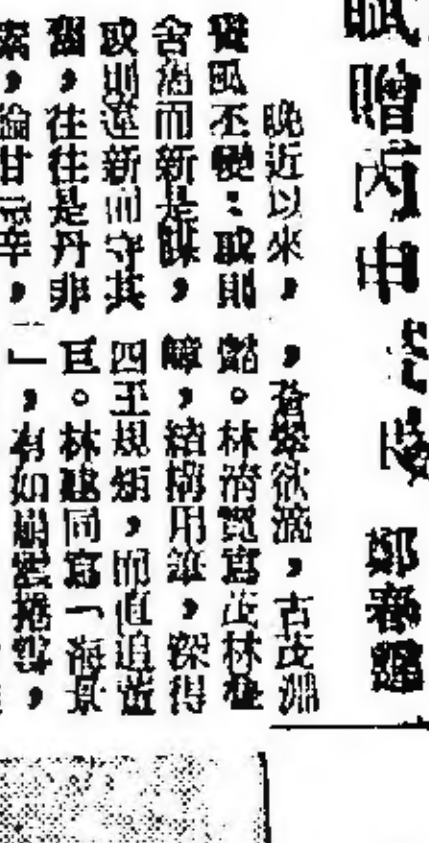 贈丙申
鄭春霆
晚近以來，
風丕變：或則
舍舊而新是謀，
或則遠新而守其
舊，往往是丹非
素，論甘忌辛，
，蒼翠欲滴，古茂淵
懿。林清霓寫茂林疊
嶂，結構用筆，深得
四王規矩，而直追董
巨。林建同寫「海景
」，有如崩雲捲雪，